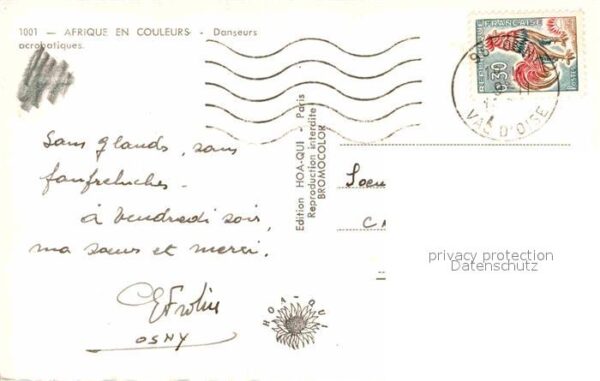 1001 — AFRIQUE EN COULEURS - Danseurs
acrobatiques.
RÉPUBLIQUE FRANÇAISE
0,30
POSTES
95
VAL D'OISE
Sans glands, sans
fanfreluches.
à Vendredi soir,
ma sœur et merci.
OSNY
Edition HOA-QUI - Paris
Reproduction interdite
BROMOCOLOR
HOA-QUI
Soeu
C
privacy protection
Datenschutz